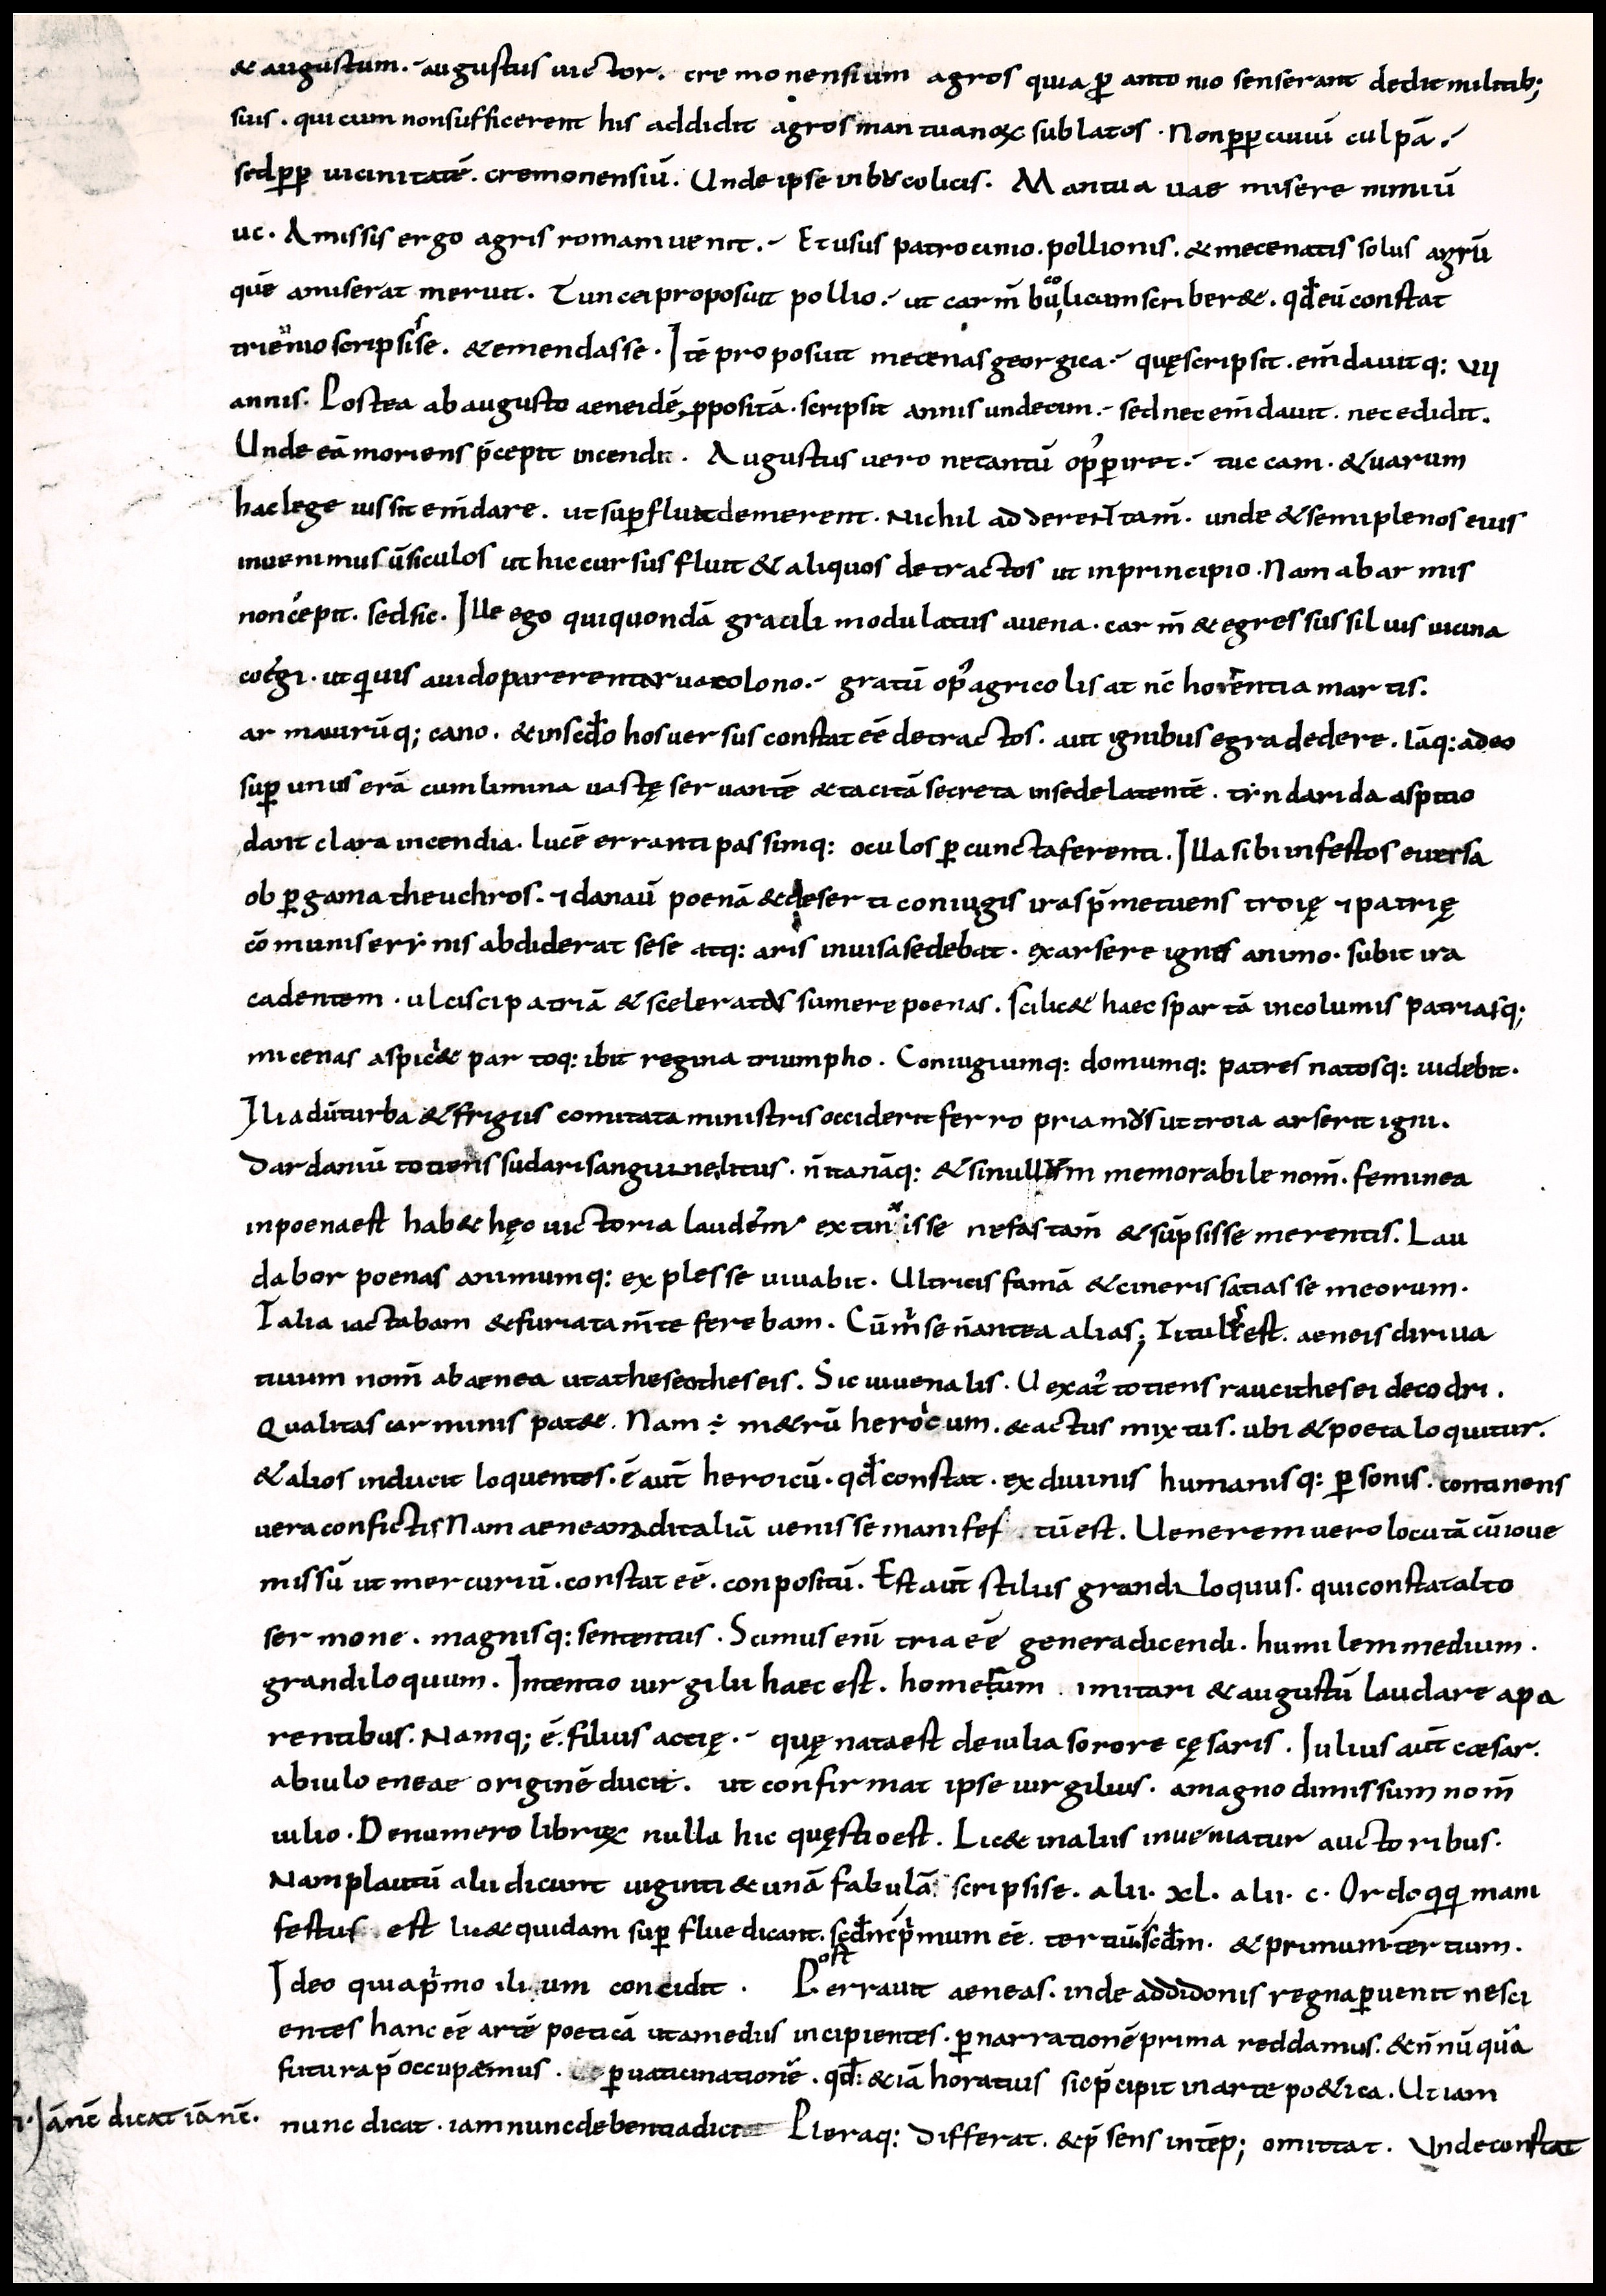 & augustum. augustus uictor. cremonensium agros quia ꝑ antonio senserant dedit militib;
suis. qui cum non sufficerent his addidit agros mantuanoꝝ sublatos. Non ꝓꝑ ciuiū culpā.
sed ꝓꝑ uicinitatē. cremonensiū. Unde ipse in bucolicis. Mantua uae misere nimiū
uc. Amissis ergo agris romam uenit. Et usus patrocinio. pollionis. & mecenatis solus agrū
quē amiserat meruit. Tunc ei proposuit pollio. ut carm̄ bucolicum scriber&. qđ eū constat
triennio scripsisse. & emendasse. Itē proposuit mecenas georgica. quę scripsit. em̄dauitq: VII
annis. Postea ab augusto aeneidē ꝓpositā. scripsit annis undecim. sed nec em̄dauit. nec edidit.
Unde eā moriens p̄cepit incendi. Augustus uero ne tantū op' periret. tuccam. & uarum
hac lege iussit em̄dare. ut suꝑflua demerent. Nichil adderent tam̄. unde & semiplenos eius
inuenimus ūsiculos ut hic cursus fluit & aliquos detractos ut in principio. Nam ab armis
non cepit. sed sic. Ille ego qui quondā gracili modulatus auena. carm̄ & egressus siluis uicina
coegi. ut quis auido parerent arua colono. gratū op' agricolis at nc̄ horrentia martis.
arma uirūq; cano. & in scđo hos uersus constat eē detractos. aut ignibus egra dedere. Iāq: adeo
suꝑ unus erā cum limina uastę seruantē & tacitā secreta in sede latentē. tyndarida aspitio
dant clara incendia. lucē erranti passimq: oculos ꝑ cuncta ferenti. Illa sibi infestos euersa
ob ꝑgama theuchros. ⁊ danaū poenā & deserti coniugis iras p̄metuens troię ⁊ patrię
cōmunis erynis abdiderat sese atq: aris inuisa sedebat. exarsere ignes animo. subit ira
cadentem. ulcisci patriā & sceleratas sumere poenas. scilic& haec spartā incolumis patriasq;
micenas aspici& partoq: ibit regina triumpho. Coniugiumq: domumq: patres natosq: uidebit.
Iliadū turba & frigiis comitata ministris occiderit ferro priamus ut troia arserit igni.
Dardaniū totiens sudarit sanguine litus. n̄ ita nāq: & si nullum memorabile nom̄. feminea
in poena est hab& hęc uictoria laudem extinxisse nefas tam̄ & sūpsisse merentis. Lau
dabor poenas animumq: explesse iuuabit. Ultricis famā & cineris satiasse meorum.
Talia iactabam & furiata m̄te ferebam. Cū m̄ se n̄ antea alias; Titulus est. aeneis diriua
tiuum nom̄ ab aenea ut a theseo theseis. Sic iuuenalis. Uexat' totiens rauci thesei decodri.
Qualitas carminis pat&. Nam ÷ m&rū heroicum. & actus mixtus. ubi & poeta loquitur.
& alios inducit loquentes. ē aut̄ heroicū. qđ constat. ex diuinis humanisq: ꝑsonis. continens
uera con fictis Nam aenean ad italiā uenisse manifes tū est. Uenerem uero locutā cū ioue
missū ut mercuriū. constat eē. conpositū. Est aut̄ stilus grandiloquus. qui constat alto
sermone. magnisq: sententiis. Scimus enī tria eē genera dicendi. humilem medium.
grandiloquum. Intentio uirgilii haec est. homerum imitari & augustū laudare a pa
rentibus. Namq; ē. filius actię. quę nata est de iulia sorore cęsaris. Iulius aut̄ cæsar.
ab iulo eneae originē ducit. ut confirmat ipse uirgilius. a magno dimissum nom̄
iulio. De numero libroꝝ nulla hic quęstio est. Lic& in aliis inueniatur auctoribus.
Nam plautū alii dicunt uiginti & unā fabulā scripsise. alii. xl. alii. c. Ordo qq mani
festus est lic& quidam suꝑflue dicant. scđm p̄mum eē. tertiū scđm. & primum tertium.
Ideo quia p̄mo ilium concidit. Post errauit aeneas. inde ad didonis regna ꝑuenit nesci
entes hanc eē artē poeticā ut a mediis incipientes. ꝑ narrationē prima reddamus. & n̄nū quā
futura p̄occupemus. ꝑ uaticinationē. qđ: & iā horatius sic p̄cipit in arte po&ica. Ut iam
nunc dicat. iam nunc debentia dici Pleraq: differat. & p̄sens in tēp; omittat. Unde constat
Iā nc̄ dicat iā nc̄.